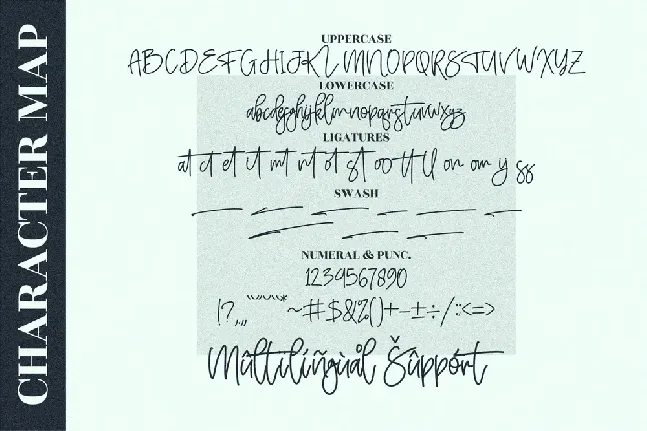 CHARACTER MAP
UPPERCASE
ABCDEFGHIJKLMNOPQRSTUVWXYZ
LOWERCASE
abcdefghijklmnopqrstuvwxyz
LIGATURES
at ct et it mt nt ot st oo tt ll on om y ss
SWASH
NUMERAL & PUNC.
1234567890
~#$&%()+-±÷/:<=>
Mûltilíñgùål Šûppórt